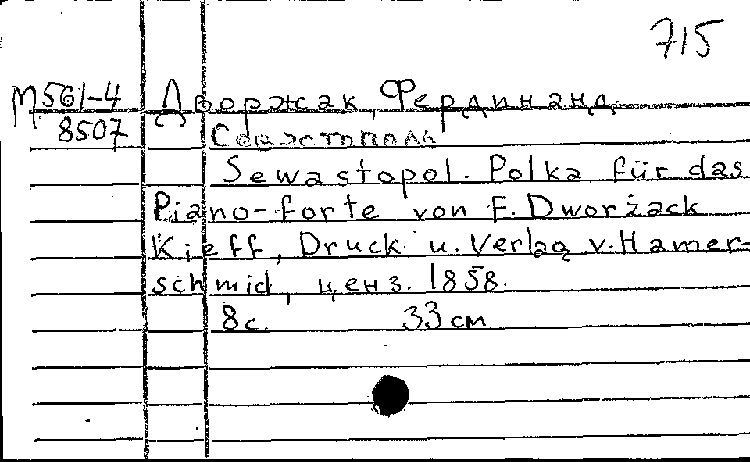 715
М561-4 Дворжак, Фердинанд
8507 Севастополь
Sewastopol. Polka für das
Piano-forte von F. Dworżack
Kieff, Druck u. Verlag v. Hamer-
schmid, ценз. 1858.
8с. 33 см